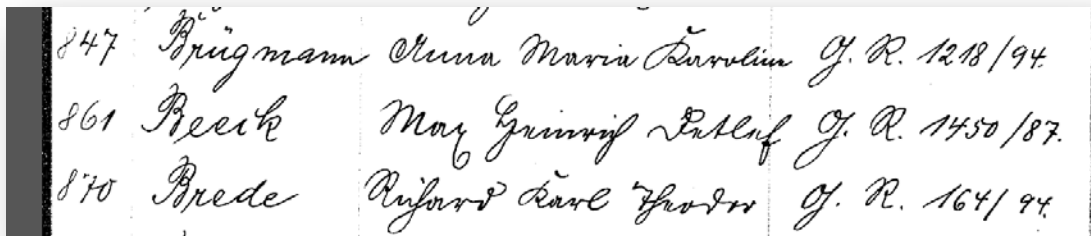 847 Brügmann Anna Maria Karoline G. R. 1218/94.
861 Beeck Max Heinrich Detlef G. R. 1450/87.
870 Brede Richard Karl Theodor G. R. 164/94.